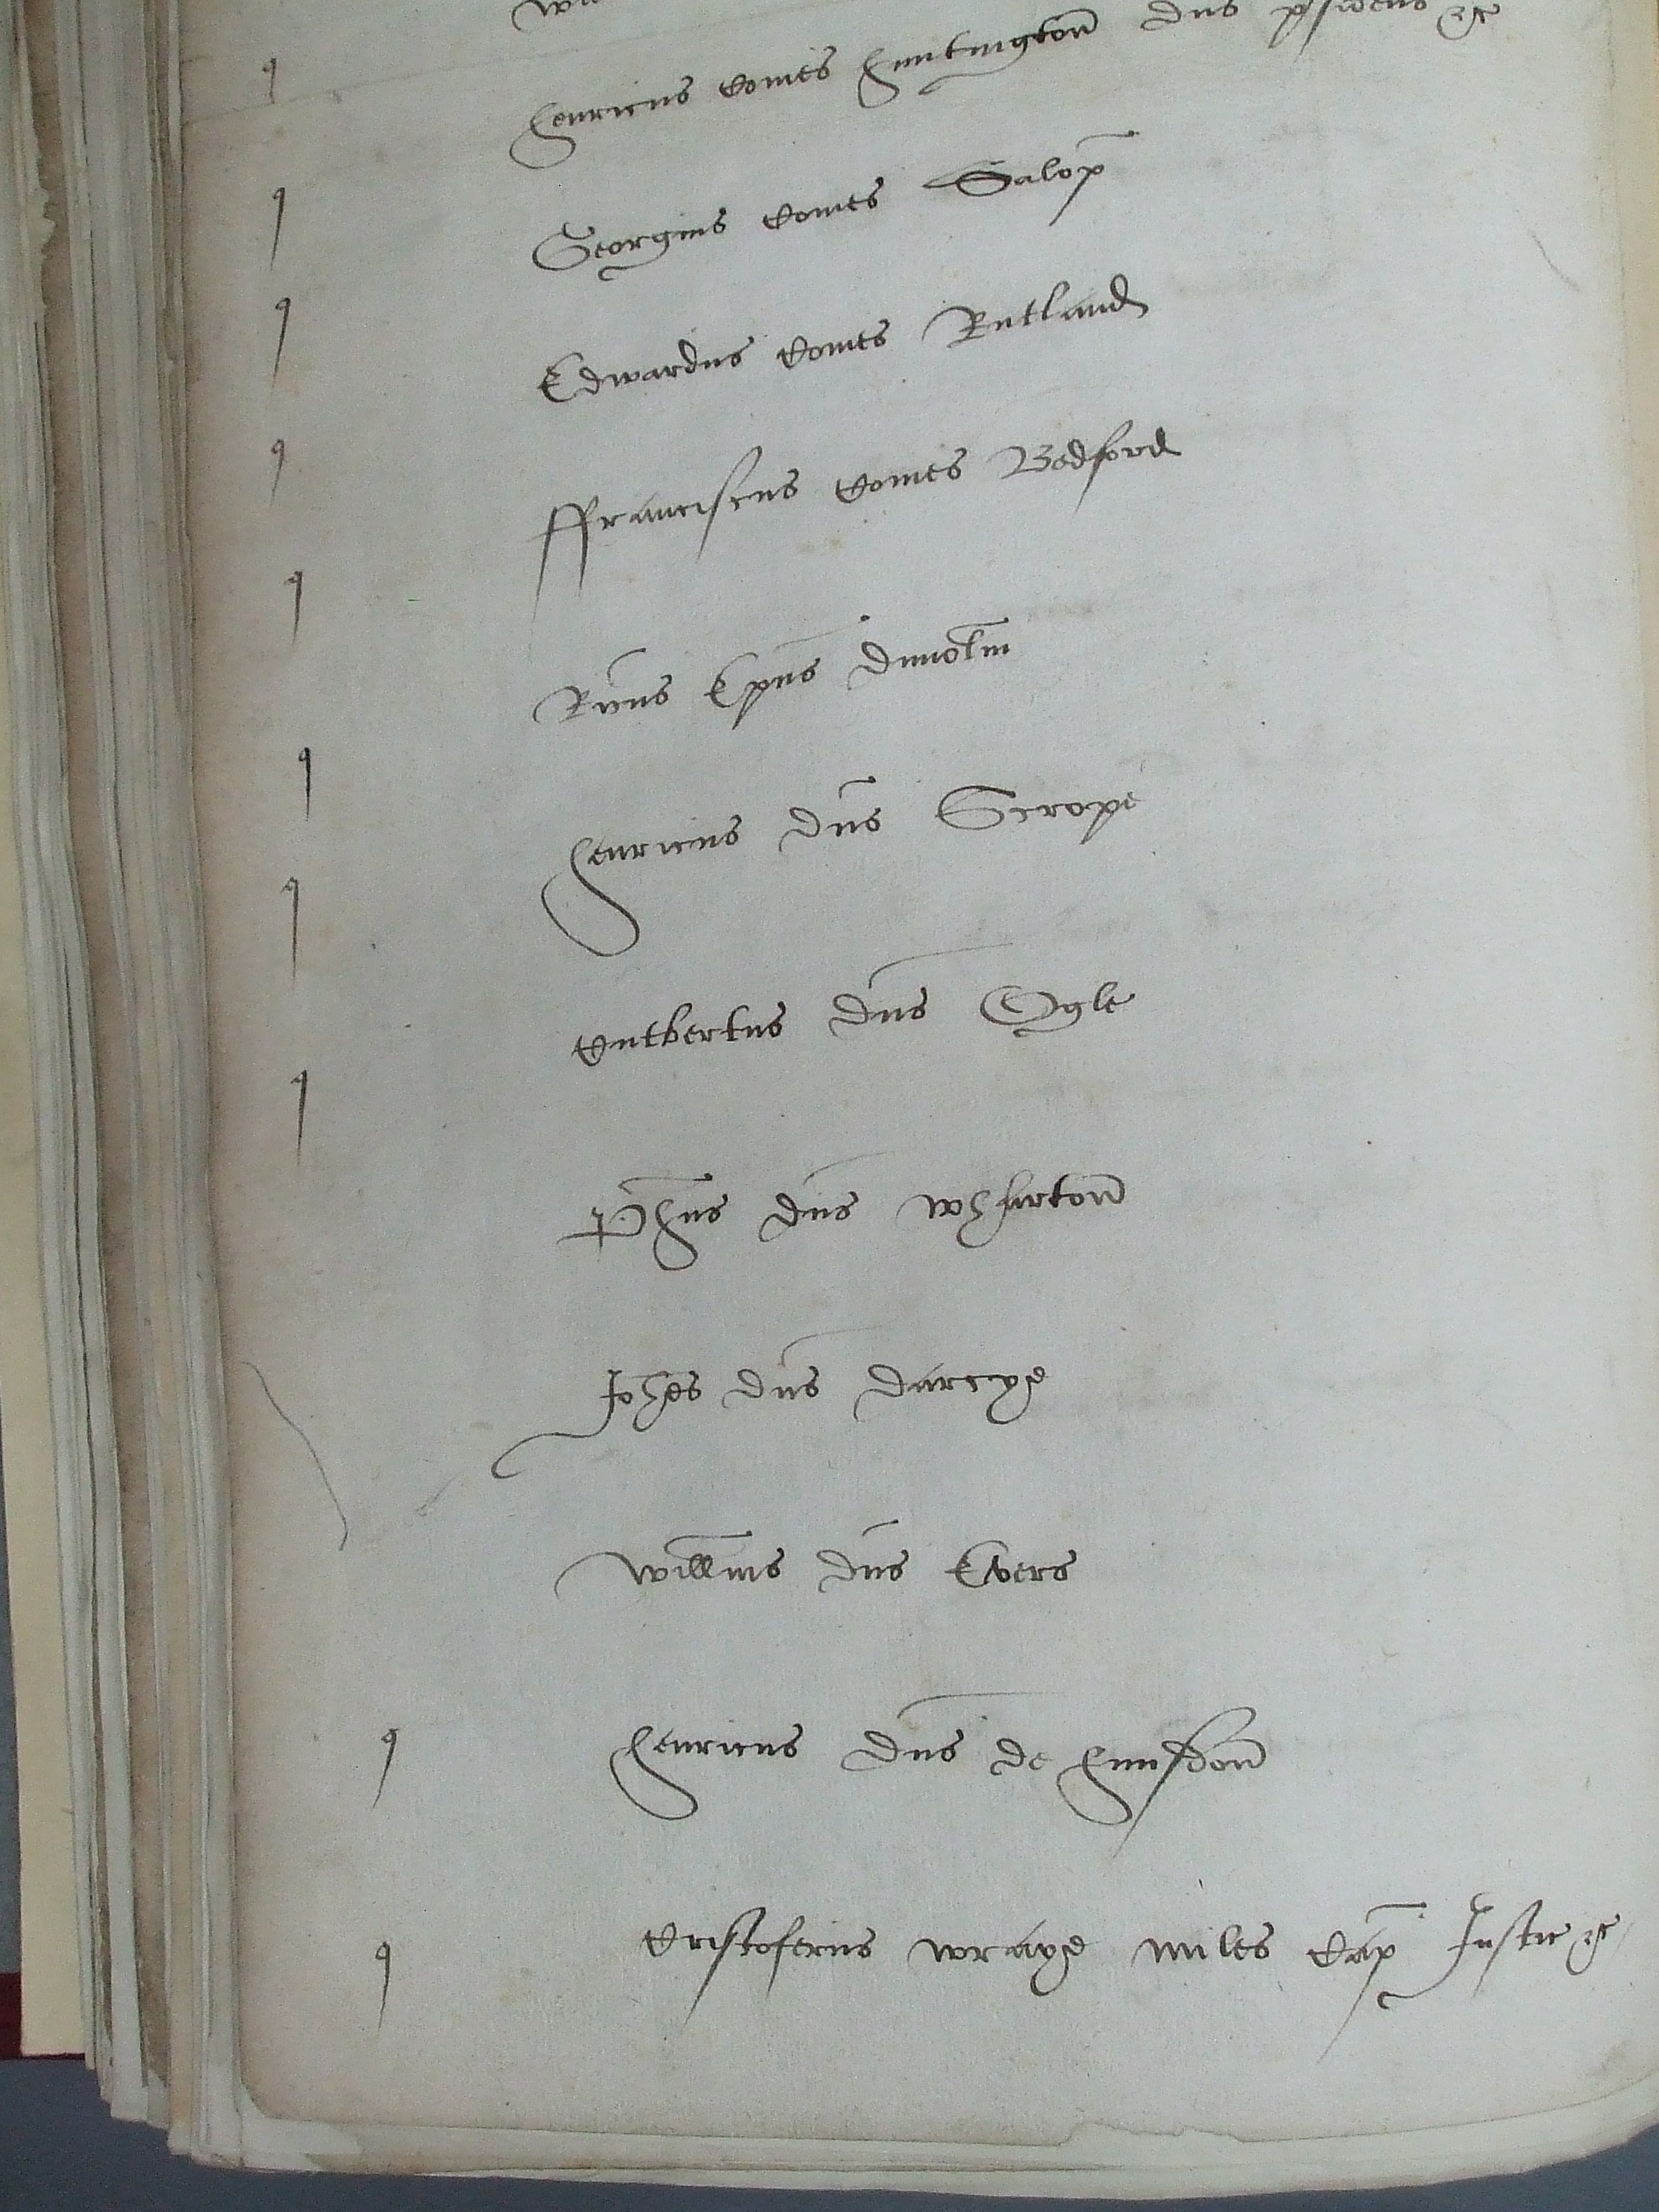 q henricus Comes huntingtoñ dns psidens &c
q Georgius Comes Salop̄
q Edwardus Comes Rutland
q ffranciscus Comes Bedford
q Ric̄us Ep̄us Dunolm̄
q henricus dn̄s Scrope
q Cutbertus dn̄s Ogle
q Ph̄us dn̄s whartoñ
Joh̄es dn̄s Darcye
Willm̄us dn̄s Evers
q henricus dn̄s de hunsdoñ
q Cristoferus wraye miles Cap̄ Justic &c